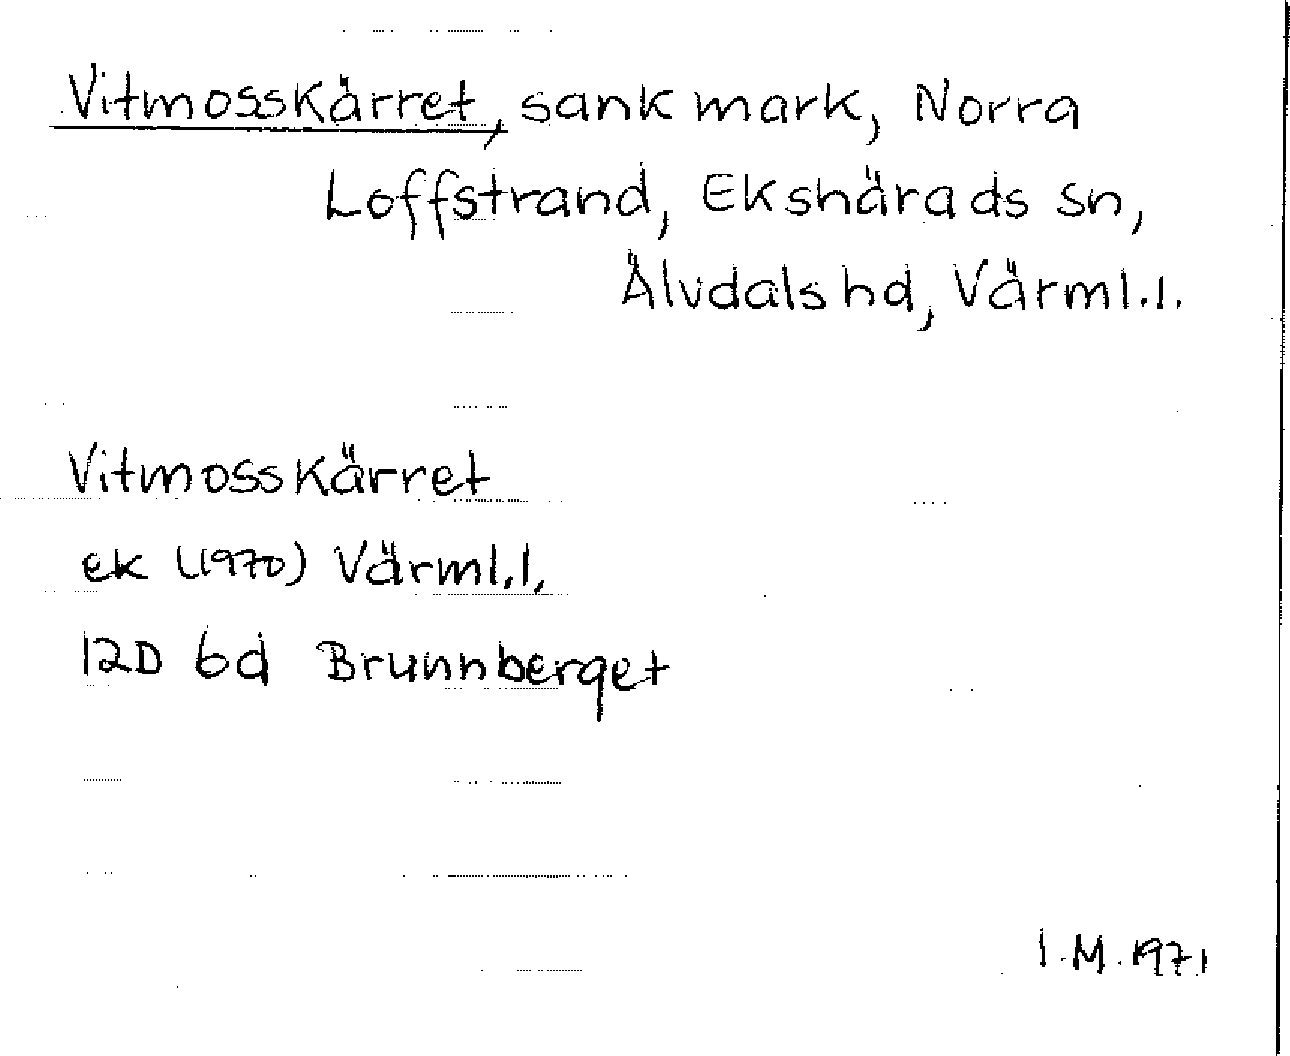 Vitmosskärret, sank mark, Norra
Loffstrand, Ekshärads sn,
Älvdals hd, Värml.l.
Vitmosskärret
ek (1970) Värml.l,
12D 6d Brunnberget
I.M. 1971